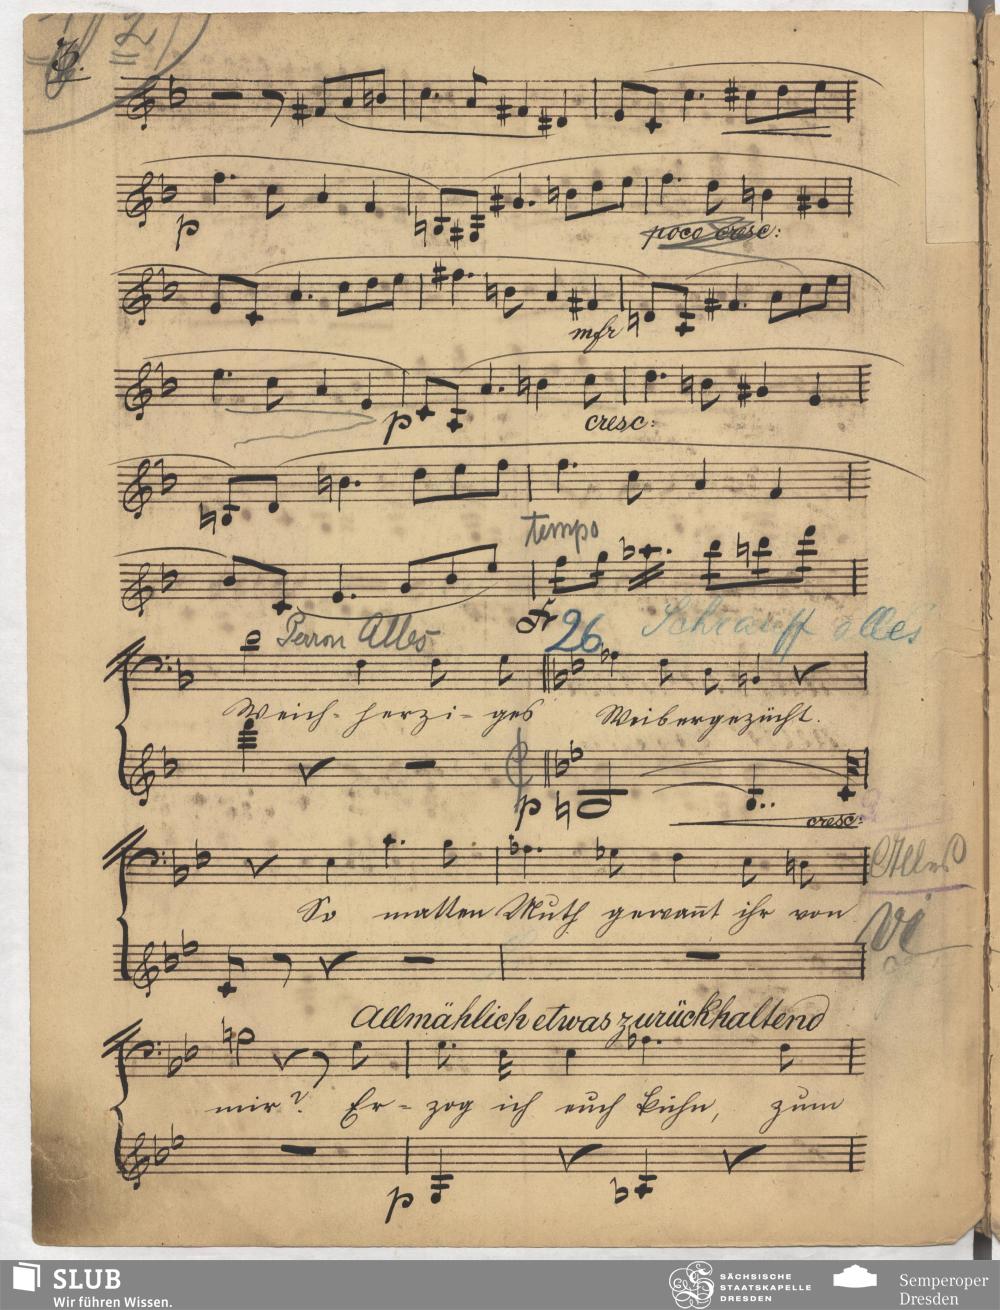 3.
p
poco cresc:
mfr
p
cresc:
tempo
26
Perron Alles
Weich- herzi- ges Weibergezücht.
p
cresc:
Alles
So matten Muth gewannt ihr von
Allmählich etwas zurückhaltend
mir? Er- zog ich euch kühn, zum
p
SLUB
Wir führen Wissen.
SÄCHSISCHE
STAATSKAPELLE
DRESDEN
Semperoper
Dresden